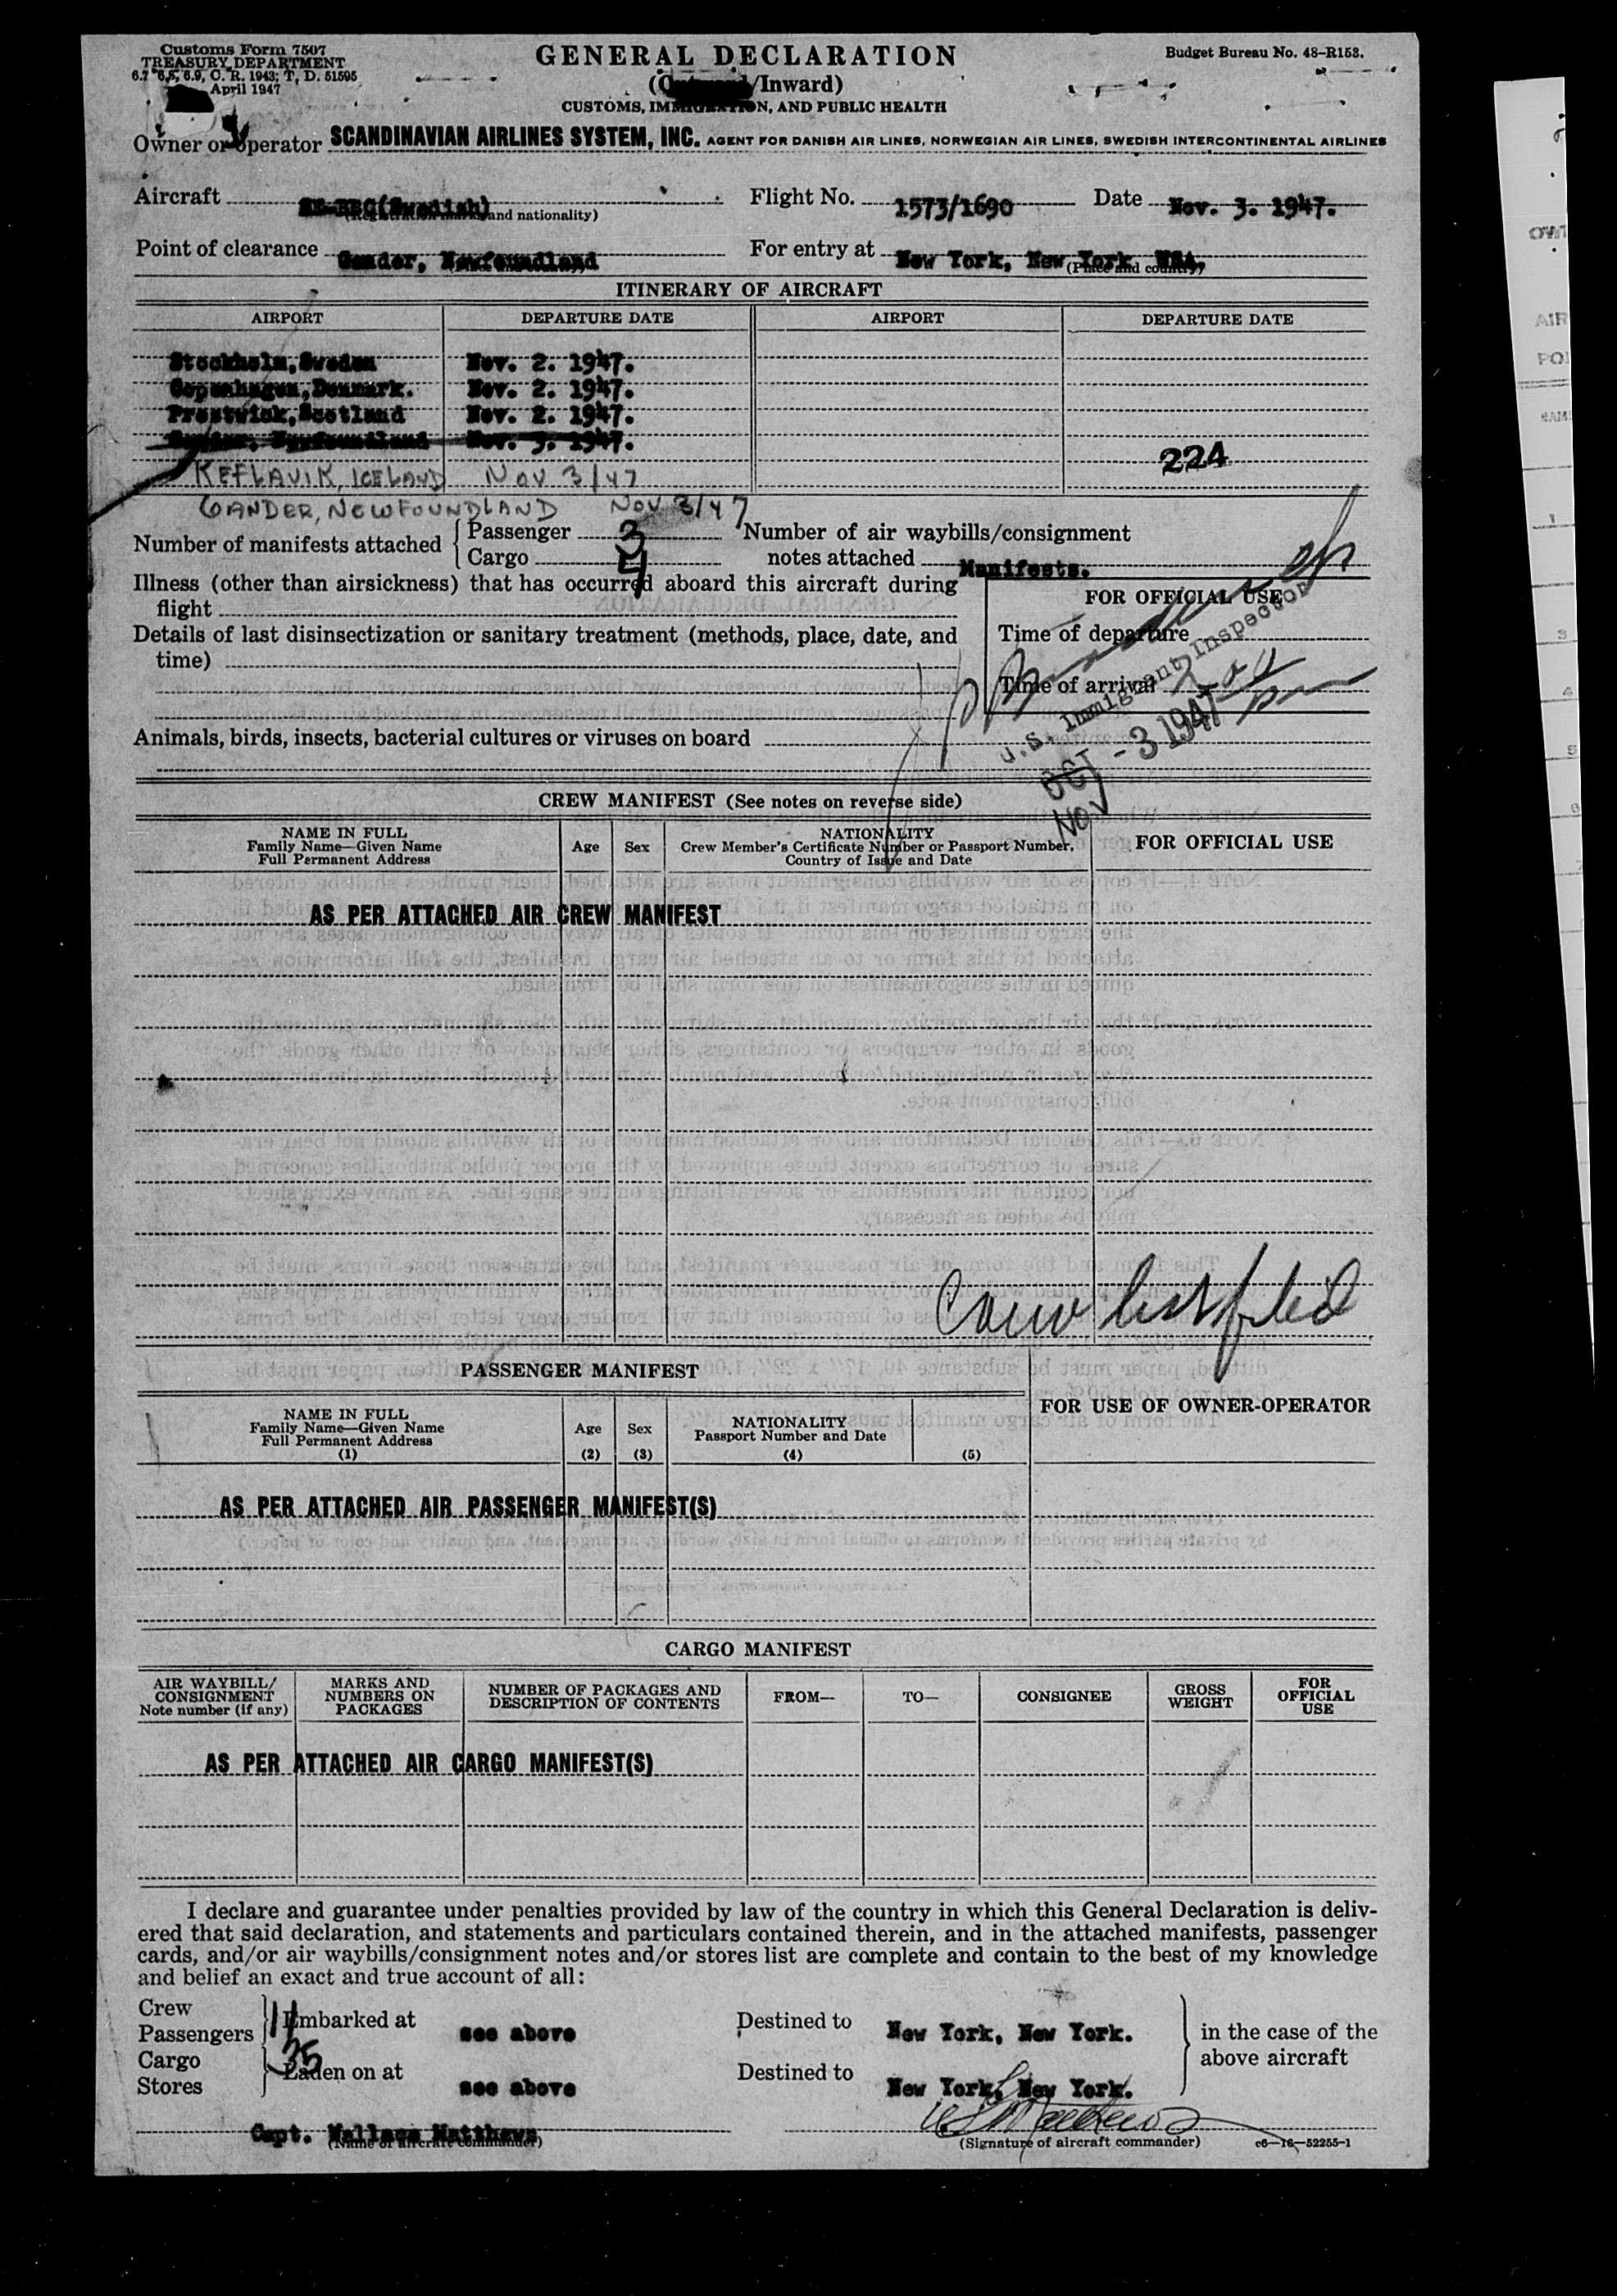 Customs Form 7507
TREASURY DEPARTMENT
6.7 6.8, 6.9, C. R. 1943; T. D. 51595
April 1947
GENERAL DECLARATION
(/Inward)
CUSTOMS, IMMIGRATION, AND PUBLIC HEALTH
Budget Bureau No. 48-R153.
Owner or operator SCANDINAVIAN AIRLINES SYSTEM, INC. AGENT FOR DANISH AIR LINES, NORWEGIAN AIR LINES, SWEDISH INTERCONTINENTAL AIRLINES
Aircraft (Swedish) Flight No. 1573/1690 Date Nov. 3. 1947.
and nationality)
Point of clearance Gander, Newfoundland For entry at New York, New York USA.
(Place and country)
ITINERARY OF AIRCRAFT
AIRPORT DEPARTURE DATE AIRPORT DEPARTURE DATE
Stockholm, Sweden Nov. 2. 1947.
Copenhagen, Denmark. Nov. 2. 1947.
Prestwick, Scotland Nov. 2. 1947.
Gander, Newfoundland Nov. 3. 1947.
224
KEFLAVIK, ICELAND NOV 3/47
GANDER, NEWFOUNDLAND NOV 3/47
Number of manifests attached { Passenger 3
Cargo 4
Number of air waybills/consignment
notes attached Manifests.
Illness (other than airsickness) that has occurred aboard this aircraft during
flight
Details of last disinsectization or sanitary treatment (methods, place, date, and
time)
FOR OFFICIAL USE
Time of departure
Time of arrival
U.S. Immigrant Inspector
OCT - 3 1947
NOV
Animals, birds, insects, bacterial cultures or viruses on board
CREW MANIFEST (See notes on reverse side)
NAME IN FULL
Family Name—Given Name
Full Permanent Address
Age
Sex
NATIONALITY
Crew Member's Certificate Number or Passport Number,
Country of Issue and Date
FOR OFFICIAL USE
AS PER ATTACHED AIR CREW MANIFEST
Crew list filed
PASSENGER MANIFEST
FOR USE OF OWNER-OPERATOR
NAME IN FULL
Family Name—Given Name
Full Permanent Address
(1)
Age
(2)
Sex
(3)
NATIONALITY
Passport Number and Date
(4)
(5)
AS PER ATTACHED AIR PASSENGER MANIFEST(S)
CARGO MANIFEST
AIR WAYBILL/
CONSIGNMENT
Note number (if any)
MARKS AND
NUMBERS ON
PACKAGES
NUMBER OF PACKAGES AND
DESCRIPTION OF CONTENTS
FROM—
TO—
CONSIGNEE
GROSS
WEIGHT
FOR
OFFICIAL
USE
AS PER ATTACHED AIR CARGO MANIFEST(S)
I declare and guarantee under penalties provided by law of the country in which this General Declaration is deliv-
ered that said declaration, and statements and particulars contained therein, and in the attached manifests, passenger
cards, and/or air waybills/consignment notes and/or stores list are complete and contain to the best of my knowledge
and belief an exact and true account of all:
Crew
Passengers
11
Embarked at see above Destined to New York, New York.
in the case of the
above aircraft
Cargo
Stores
35
Laden on at see above Destined to New York, New York.
Capt. Wallace Matthews
(Name of aircraft commander)
(Signature of aircraft commander)
c6—16—52255-1